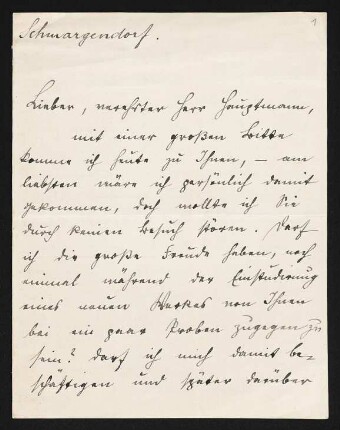 1
Schmargendorf.
Lieber, verehrter Herr Hauptmann,
mit einer großen Bitte
komme ich heute zu Ihnen, — am
liebsten wäre ich persönlich damit
gekommen, doch wollte ich Sie
durch keinen Besuch stören. Darf
ich die große Freude haben, noch
einmal während der Einstudierung
eines neuen Werkes von Ihnen
bei ein paar Proben zugegen zu
sein? Darf ich mich damit be-
schäftigen und später darüber